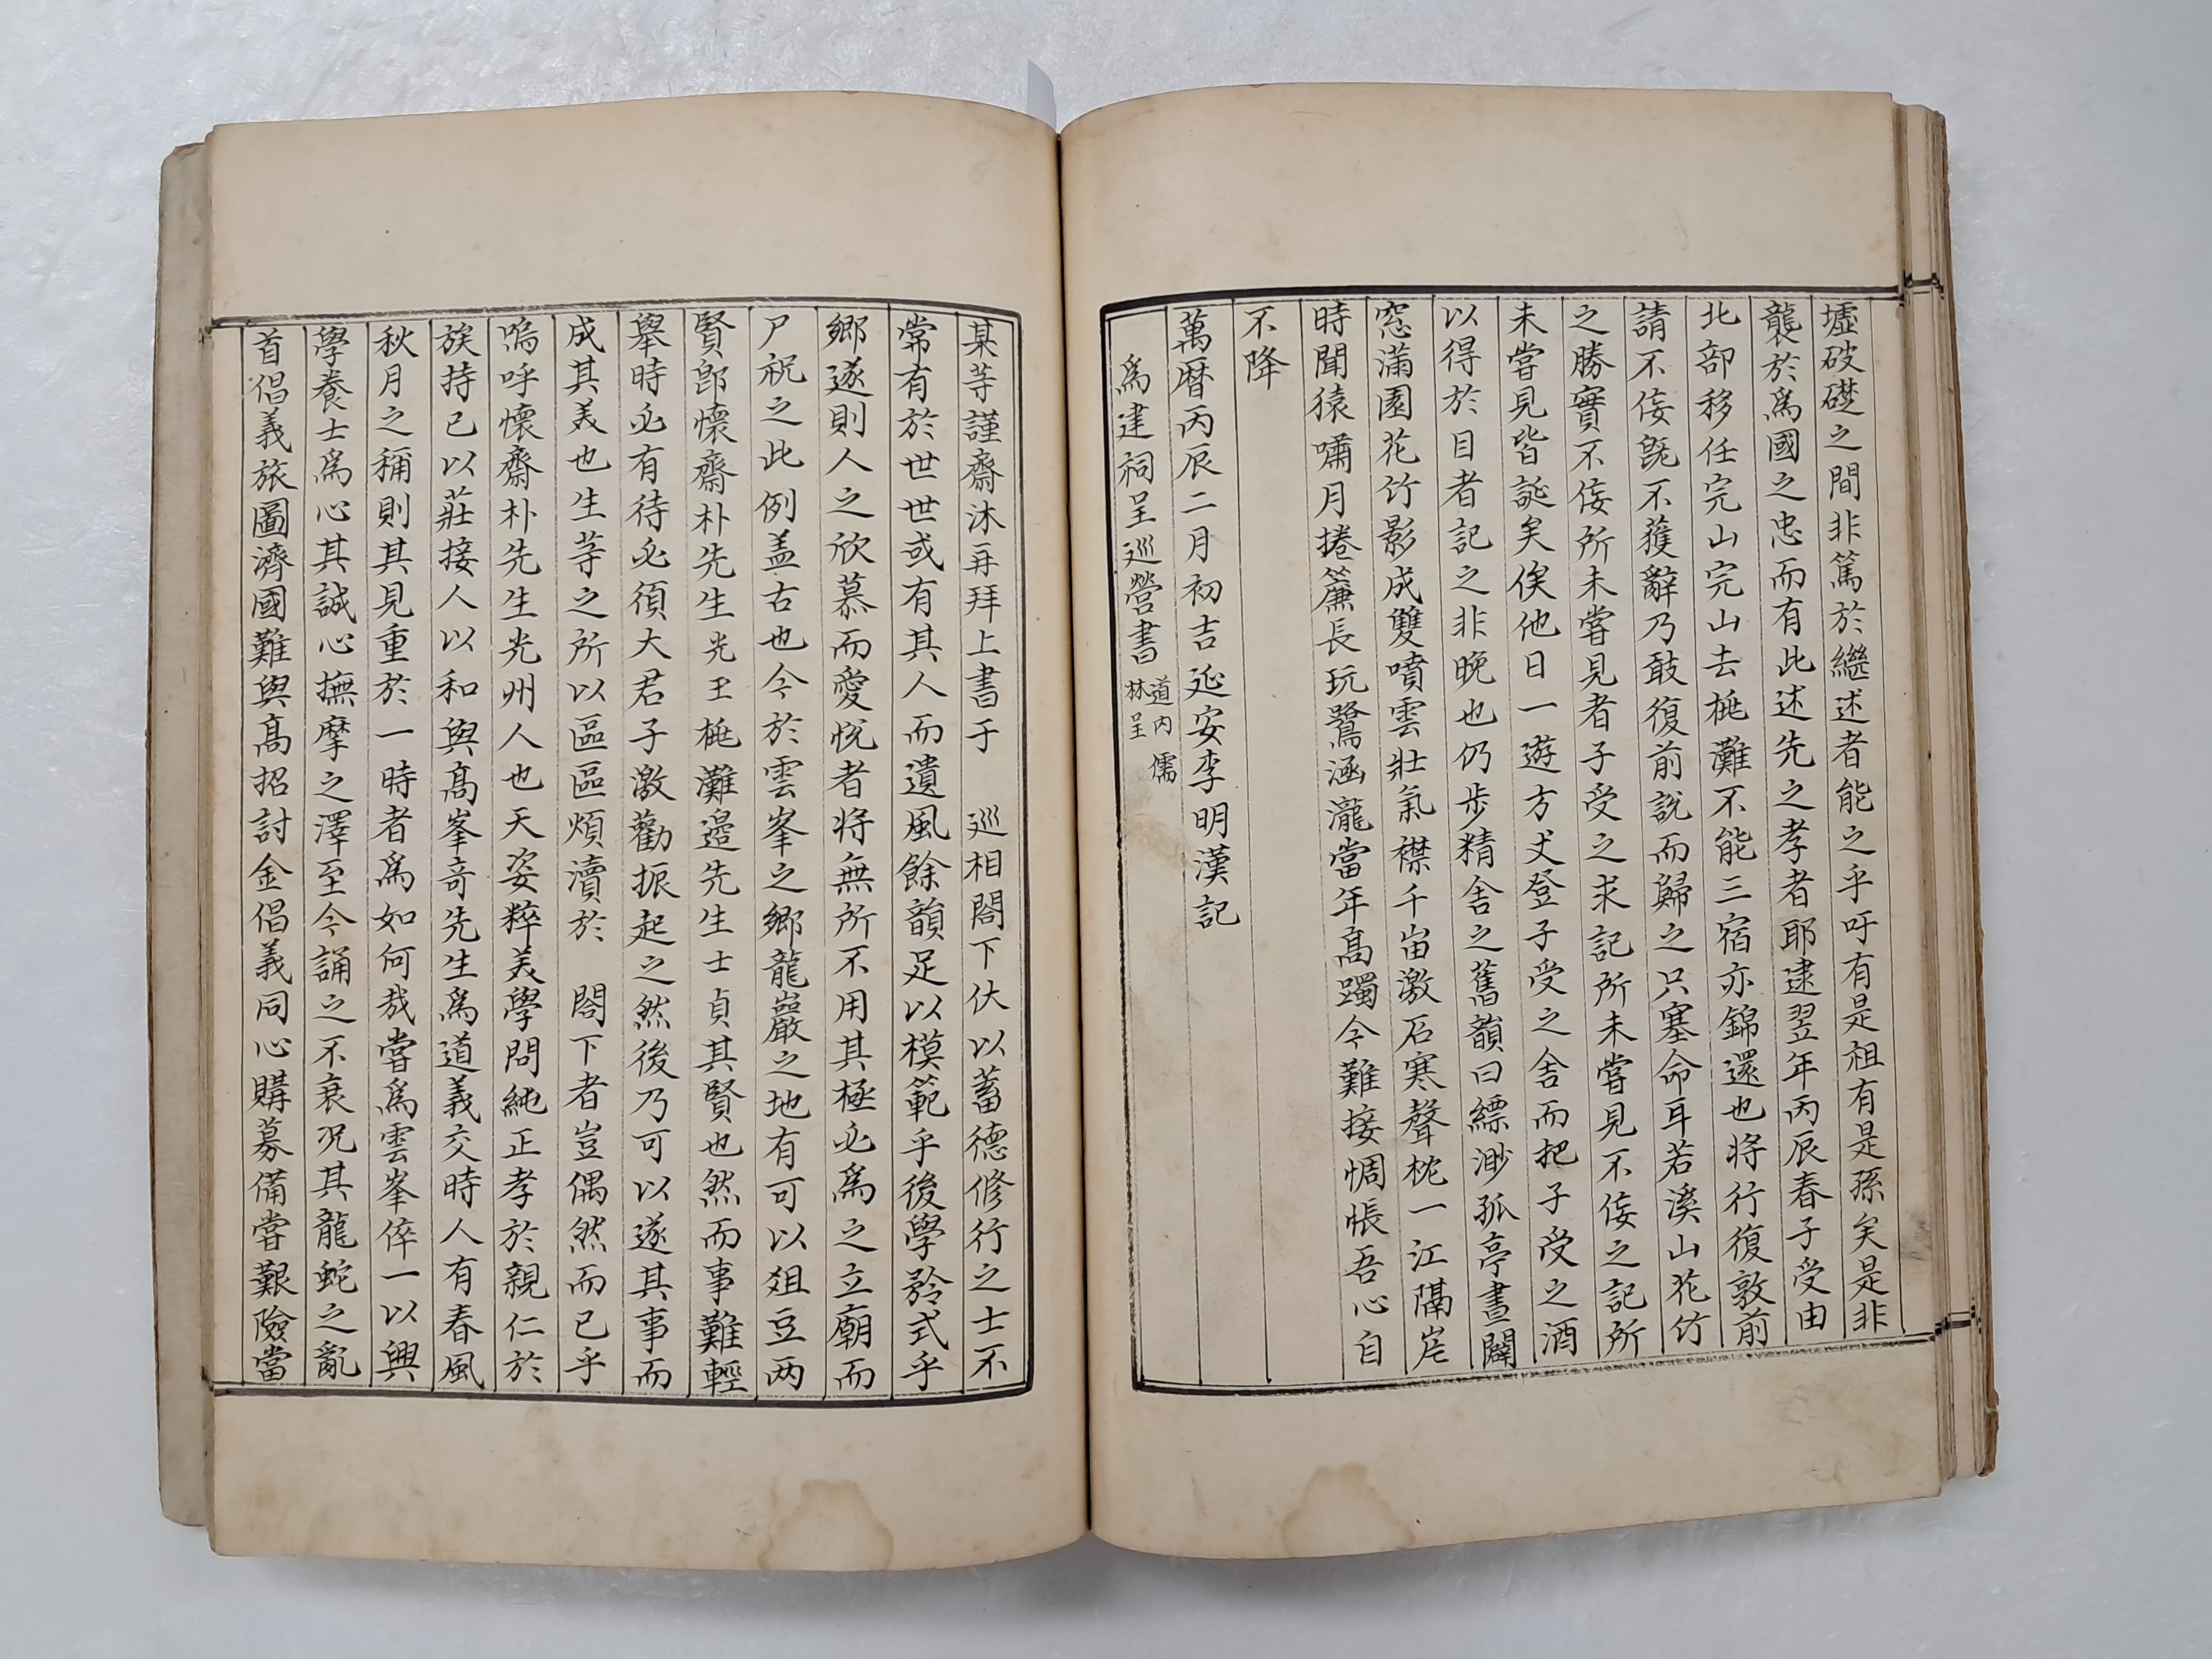 墟破礎之間非篤於繼述者能之乎吁有是祖有是孫矣是非
襲於爲國之忠而有此述先之孝者耶逮翌年丙辰春子受由
北部移任完山完山去桃灘不能三宿亦錦還也將行復敦前
請不侫旣不獲辭乃敢復前說而歸之只塞命耳若溪山花竹
之勝實不侫所未嘗見者子受之求記所未嘗見不侫之記所
未嘗見皆誕矣俟他日一遊方丈登子受之舍而把子受之酒
以得於目者記之非晩也仍步精舍之舊韻曰縹渺孤亭晝闢
窓滿園花竹影成雙噴雲壯氣襟千峀激石寒聲枕一江隔岸
時聞猿嘯月捲簾長玩鷺涵瀧當年高躅今難接惆悵吾心自
不降
萬曆丙辰二月初吉延安李明漢記
爲建祠呈巡營書 道內儒林呈
某等謹齋沐再拜上書于 巡相閤下伏以蓄德修行之士不
常有於世世或有其人而遺風餘韻足以模範乎後學矜式乎
鄉邃則人之欣慕而愛悅者將無所不用其極必爲之立廟而
尸祝之此例盖古也今於雲峯之鄉龍巖之地有可以俎豆两
賢卽懷齋朴先生光玉桃灘邊先生士貞其賢也然而事難輕
舉時必有待必須大君子激勸振起之然後乃可以遂其事而
成其美也生等之所以區區煩瀆於 閤下者豈偶然而已乎
嗚呼懷齋朴先生光州人也天姿粹美學問純正孝於親仁於
族持己以莊接人以和與高峯奇先生爲道義交時人有春風
秋月之稱則其見重於一時者爲如何哉嘗爲雲峯倅一以興
學養士爲心其誠心撫摩之澤至今誦之不衰况其龍蛇之亂
首倡義旅圖濟國難與高招討金倡義同心購募備嘗艱險當